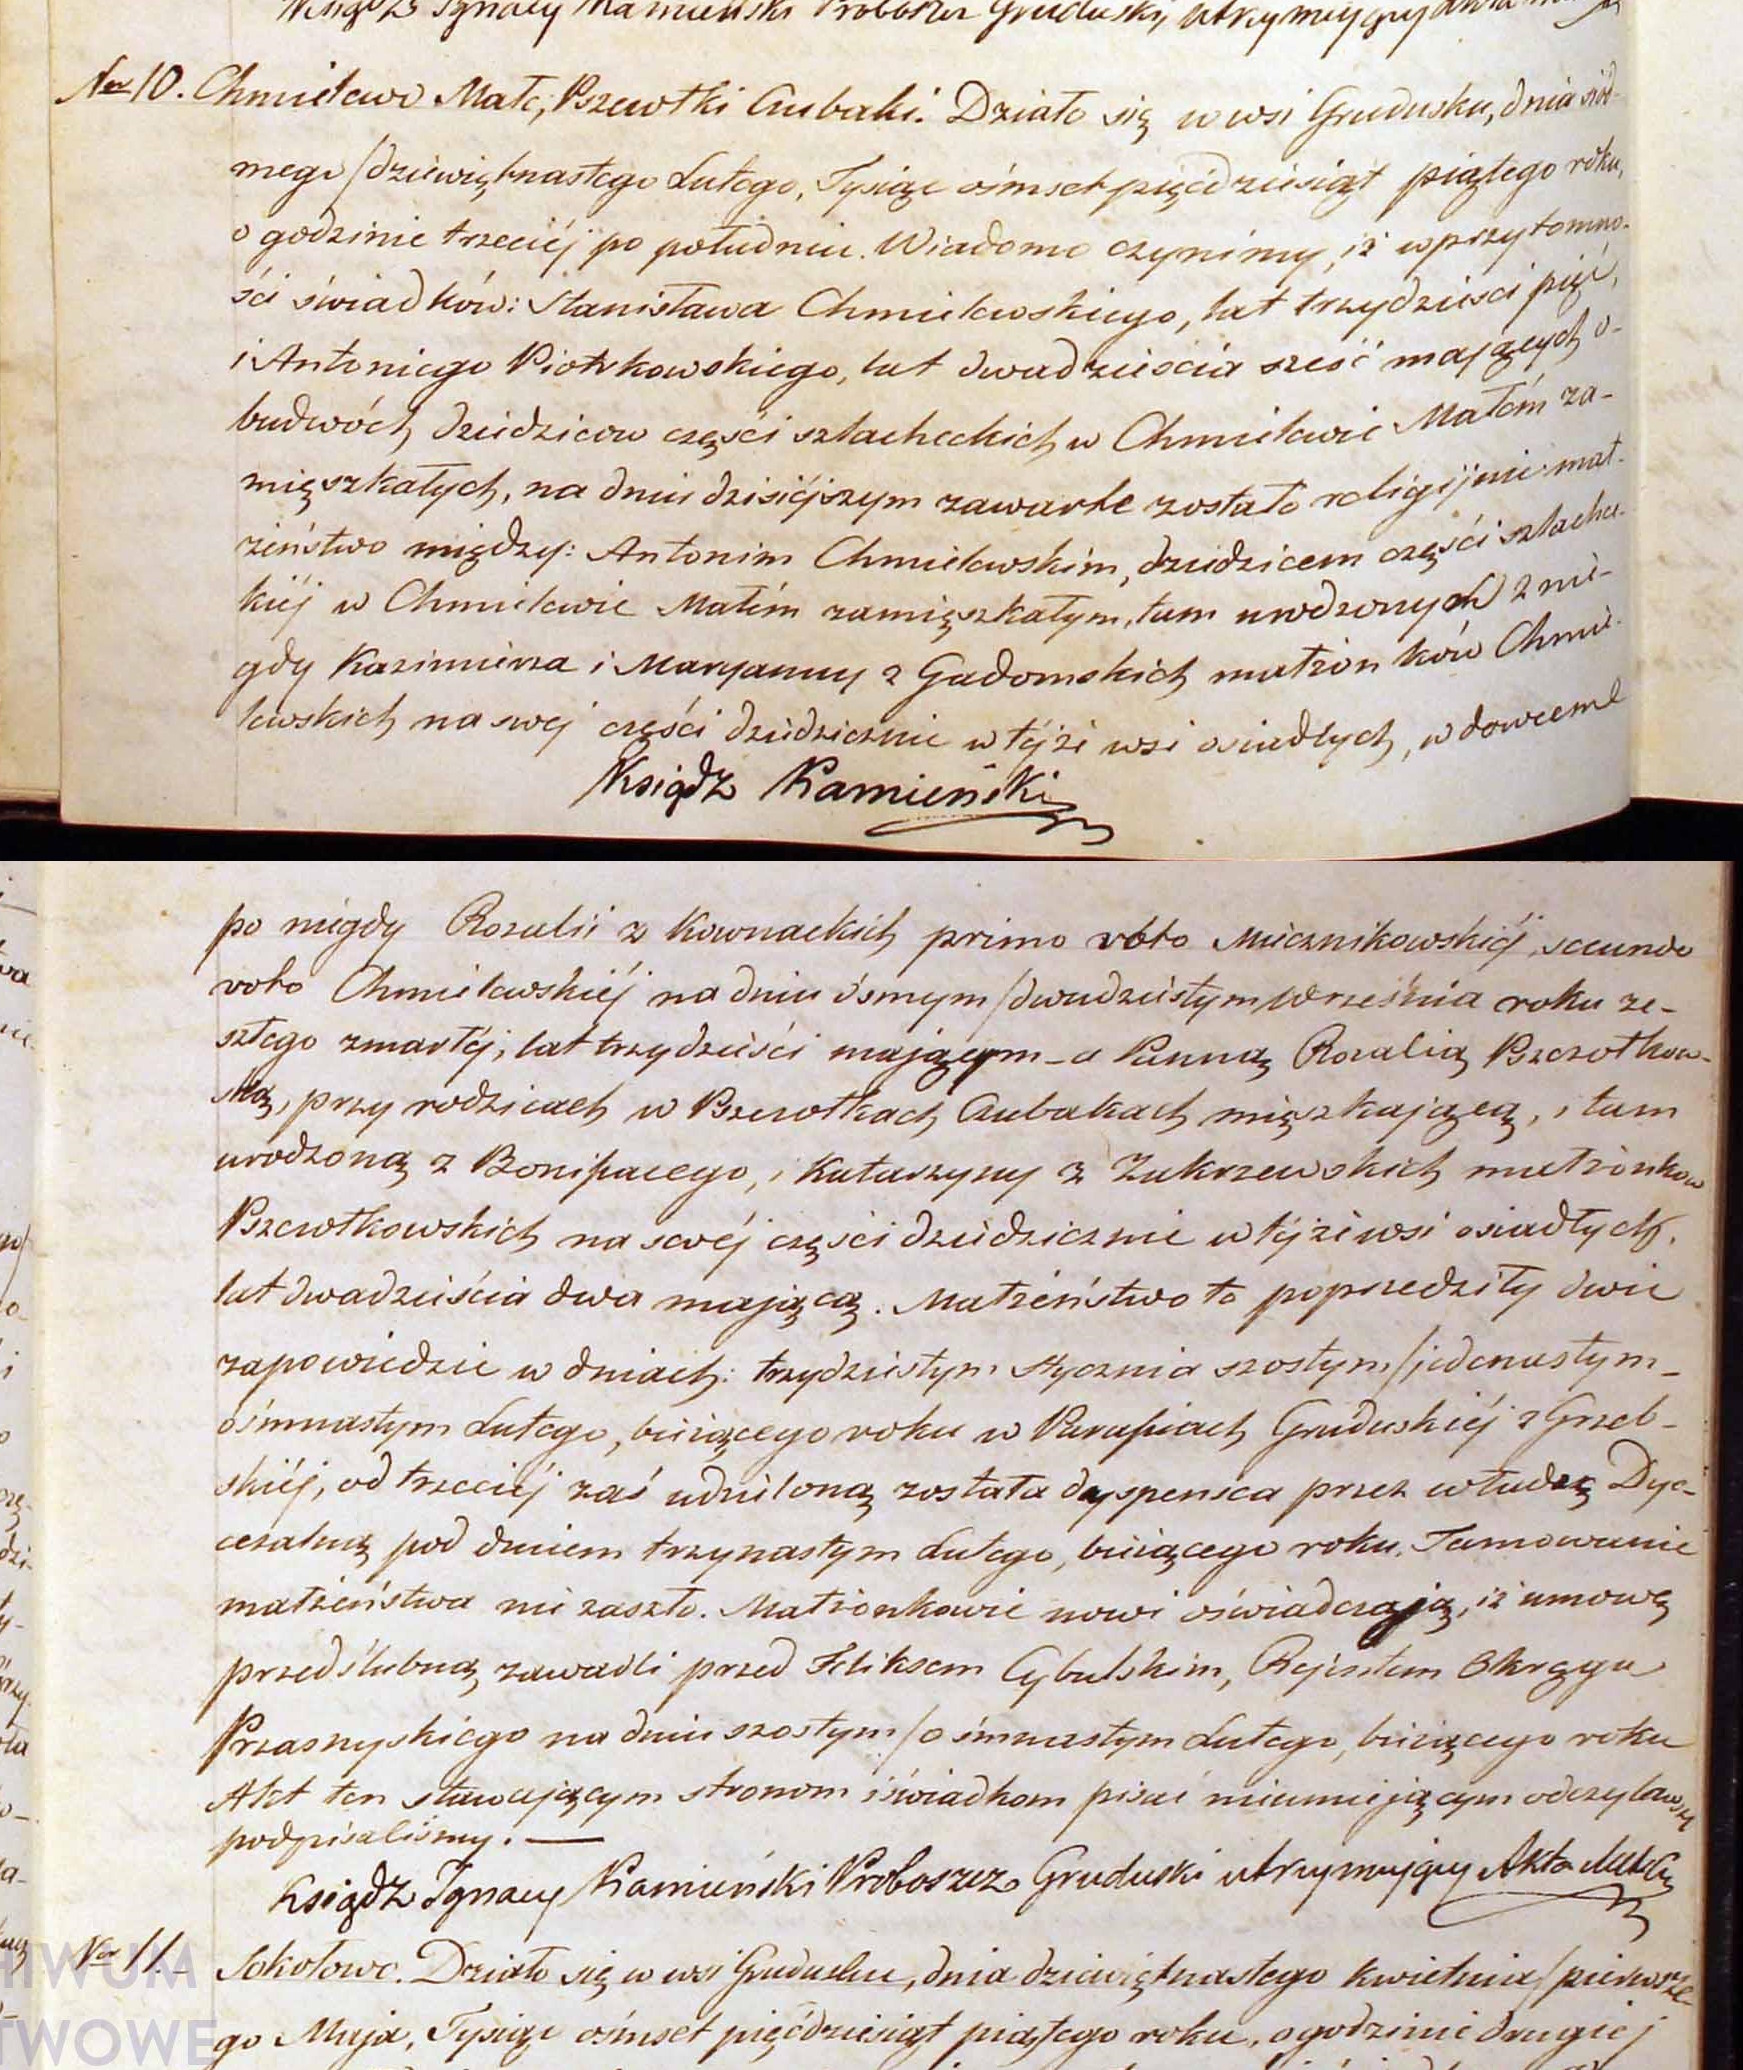 Ksiądz Ignacy Kamieński Proboszcz Gruduski, utrzymujący
Nor 10. Chmielewo Małe, Pszczołki Czubaki. Działo się w wsi Grudusku, dnia siód-
mego/dziewiętnastego Lutego, Tysiąc ośmset pięćdziesiąt piątego roku,
o godzinie trzeciéj po południu. Wiadomo czynimy, iż w przytomno-
ści świadków: Stanisława Chmielewskiego, lat trzydzieści pięć,
i Antoniego Piotrkowskiego, lat dwadzieścia sześć mających o-
budwóch dziedziców części szlacheckich w Chmielewie Małém za-
mięszkałych, na dniu dzisiéjszym zawarte zostało religijnie mał-
żeństwo między: Antonim Chmielewskim, dziedzicem części szlache-
kiéj w Chmielewie Małém zamięszkałym, tam urodzonych z nie-
gdy Kazimierza i Maryanny z Gadomskich małżonków Chmie-
lewskich na swej części dziedzicznie w téjże wsi osiadłych, wdowcem
Ksiądz Kamieński
po niegdy Rozalii z Kownackich primo voto Miecznikowskiéj, secundo
voto Chmielewskiéj na dniu ósmym/dwudziestym Września roku ze-
szłego zmarłéj, lat trzydzieści mającym – a Panną Rozalią Pszczołkow-
ską, przy rodzicach w Pszczołkach Czubakach mięszkającą, i tam
urodzoną z Bonifacego, i Katarzyny z Zakrzewskich małżonków
Pszczołkowskich na swéj części dziedzicznie w téjże wsi osiadłych,
lat dwadzieścia dwa mającą. Małżeństwo to poprzedziły dwie
zapowiedzie w dniach: trzydziestym Stycznia szostym/jedenastym –
ośmnastym Lutego, bieżącego roku w Parafiach Gruduskiéj i Grzeb-
skiéj, od trzeciéj zaś udzieloną została dyspensca przez władzę Dye-
cezalną pod dniem trzynastym Lutego, bieżącego roku. Tamowanie
małżeństwa nie zaszło. Małżonkowie nowi oświadczają, iż umowę
przedślubną zawarli przed Feliksem Cybulskim, Rejentem Okręgu
Przasnyskiego na dniu szostym/ośmnastym Lutego, bieżącego roku
Akt ten stawającym stronom i świadkom pisać nieumiejącym odczytawszy
podpisaliśmy. —
Ksiądz Ignacy Kamieński Proboszcz Gruduski utrzymujący Akta
Nor 11. Sokołowo. Działo się w wsi Grudusku, dnia dziewiętnastego Kwietnia/pierwsze-
go Maja, Tysiąc ośmset pięćdziesiąt piątego roku, o godzinie drugiej